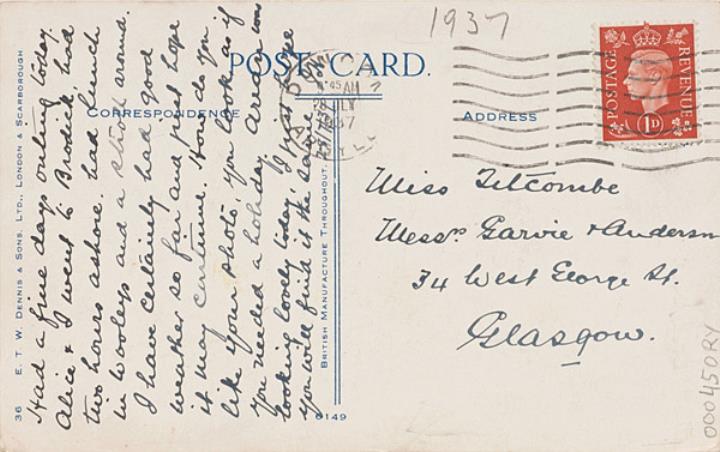 1937
POST CARD.
CORRESPONDENCE
ADDRESS
POSTAGE
REVENUE
1D
45 AM
1937
Had a fine days outing today.
Alice & I went to Brodick, had
two hours ashore. had lunch
in Wooleys and a stroll around.
I have certainly had good
weather so far and just hope
it may continue. How do you
like your photo, you look as if
you needed a holiday. Arran was
looking lovely today, I just hope
you'll find it the same
Miss Titcombe
Messrs. Garvie & Anderson
34 West George St.
Glasgow.
36 E. T. W. DENNIS & SONS, LTD., LONDON & SCARBOROUGH
BRITISH MANUFACTURE THROUGHOUT.
6149
000450RY